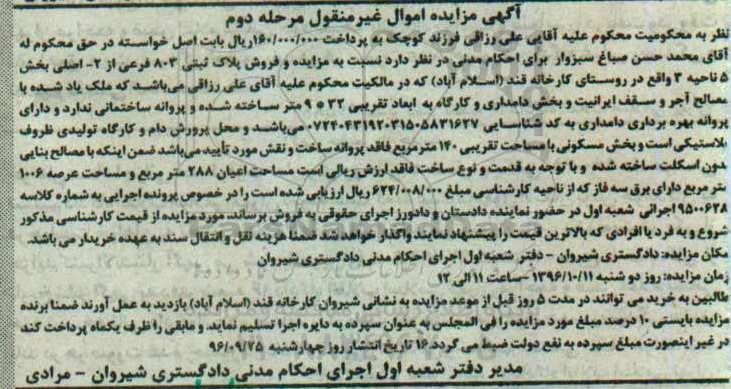 آگهی مزایده اموال غیرمنقول مرحله دوم
نظر به محکومیت محکوم علیه آقایی علی رزاقی فرزند کوچک به پرداخت ۱۶۰/۰۰۰/۰۰۰ریال بابت اصل خواسته در حق محکوم له
آقای محمد حسن صباغ سبزوار برای احکام مدنی در نظر دارد نسبت به مزایده و فروش پلاک ثبتی ۸۰۳ فرعی از ۲- اصلی بخش
۵ ناحیه ۳ واقع در روستای کارخانه قند (اسلام آباد) که در مالکیت محکوم علیه آقای علی رزاقی میباشد که ملک یاد شده با
مصالح آجر و سقف ایرانیت و بخش دامداری و کارگاه به ابعاد تقریبی ۳۲ * ۹ متر ساخته شده و پروانه ساختمانی ندارد و دارای
پروانه بهره برداری دامداری به کد شناسایی ۰۷۲۴۰۴۳۱۹۲۰۳۱۵۰۵۸۳۱۶۲۷ میباشد و محل پرورش دام و کارگاه تولیدی ظروف
پلاستیکی است و بخش مسکونی با مساحت تقریبی ۱۴۰ مترمربع فاقد پروانه ساخت و نقش مورد تأیید می‌باشد ضمن اینکه با مصالح بنایی
بدون اسکلت ساخته شده و با توجه به قدمت و نوع ساخت فاقد ارزش ریالی است مساحت اعیان ۲۸۸ متر مربع و مساحت عرصه ۱۰۰۶
متر مربع دارای برق سه فاز که از ناحیه کارشناسی مبلغ ۶۲۴/۰۰۸/۰۰۰ ریال ارزیابی شده است را در خصوص پرونده اجرایی به شماره کلاسه
۹۵۰۰۶۲۸ اجرائی شعبه اول در حضور نماینده دادستان و دادورز اجرای حقوقی به فروش برساند، مورد مزایده از قیمت کارشناسی مذکور
شروع و به فرد یا افرادی که بالاترین قیمت را پیشنهاد نمایند واگذار خواهد شد ضمنا هزینه نقل و انتقال سند به عهده خریدار می باشد.
مکان مزایده: دادگستری شیروان - دفتر شعبه اول اجرای احکام مدنی دادگستری شیروان
زمان مزایده: روز دو شنبه ۱۳۹۶/۱۰/۱۱ -ساعت ۱۱ الی ۱۲
طالبین به خرید می توانند در مدت ۵ روز قبل از موعد مزایده به نشانی شیروان کارخانه قند (اسلام آباد) بازدید به عمل آورند ضمنا برنده
مزایده بایستی ۱۰ درصد مبلغ مورد مزایده را فی المجلس به عنوان سپرده به دایره اجرا تسلیم نماید، و مابقی را ظرف یکماه پرداخت کند
در غیر اینصورت مبلغ سپرده به نفع دولت ضبط می گردد.۱۶ تاریخ انتشار روز چهارشنبه ۹۶/۰۹/۲۵
مدیر دفتر شعبه اول اجرای احکام مدنی دادگستری شیروان - مرادی